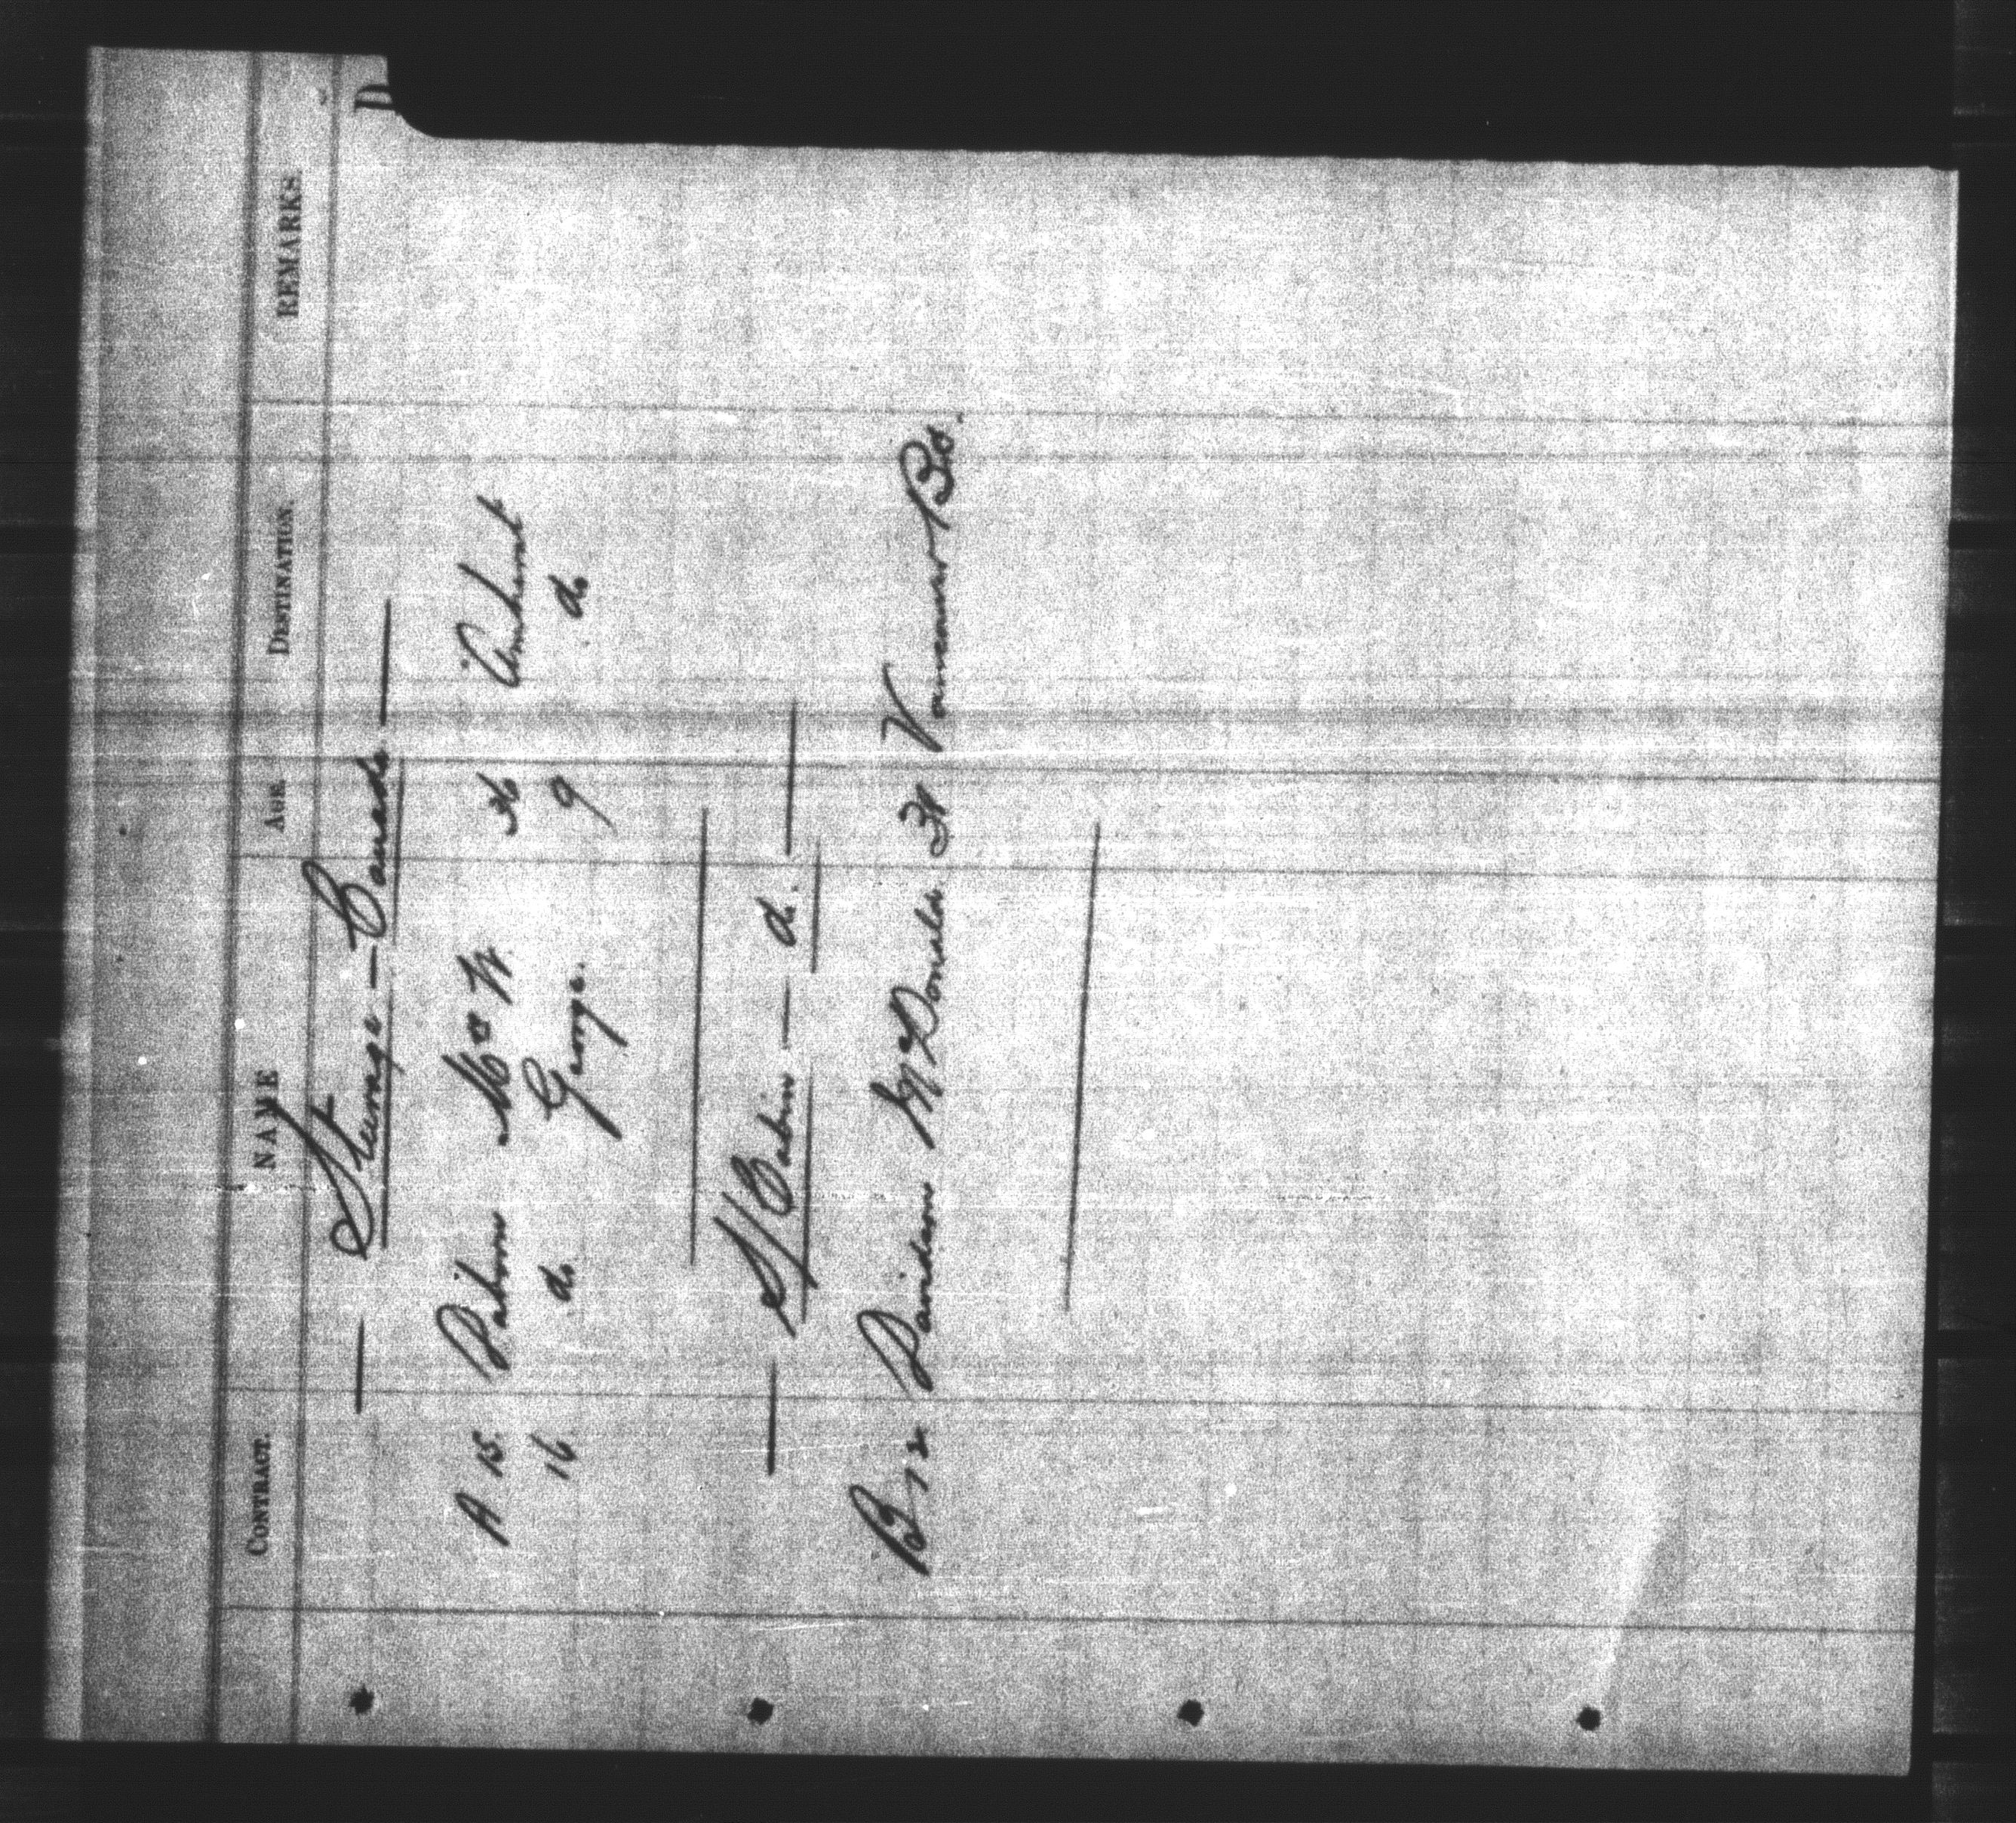 CONTRACT. NAME AGE. DESTINATION. REMARKS.
D
— Steerage — Canada —
A 15. Mrs W. 36 Amherst
16 do George. 9 do
— S/Cabin — do. —
B 72 Davidson McDonald. 31 Vancouver B.C.